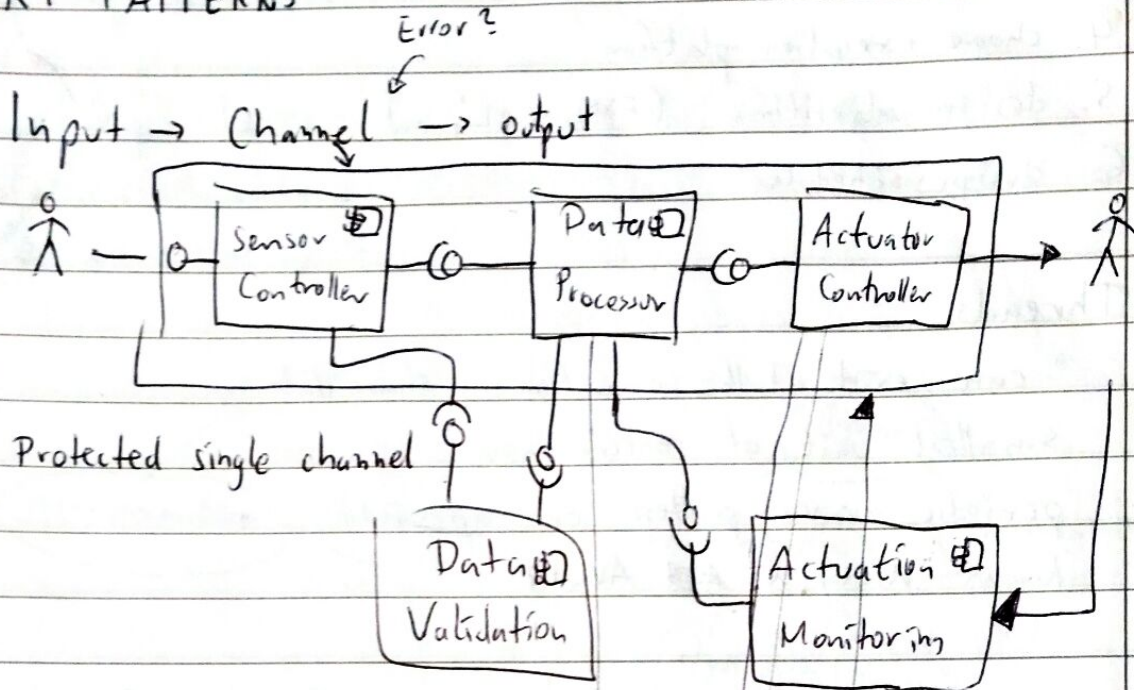 PATTERNS
Error?
Input → Channel → output
Sensor
Controller
Data
Processor
Actuator
Controller
Protected single channel
Data
Validation
Actuation
Monitoring